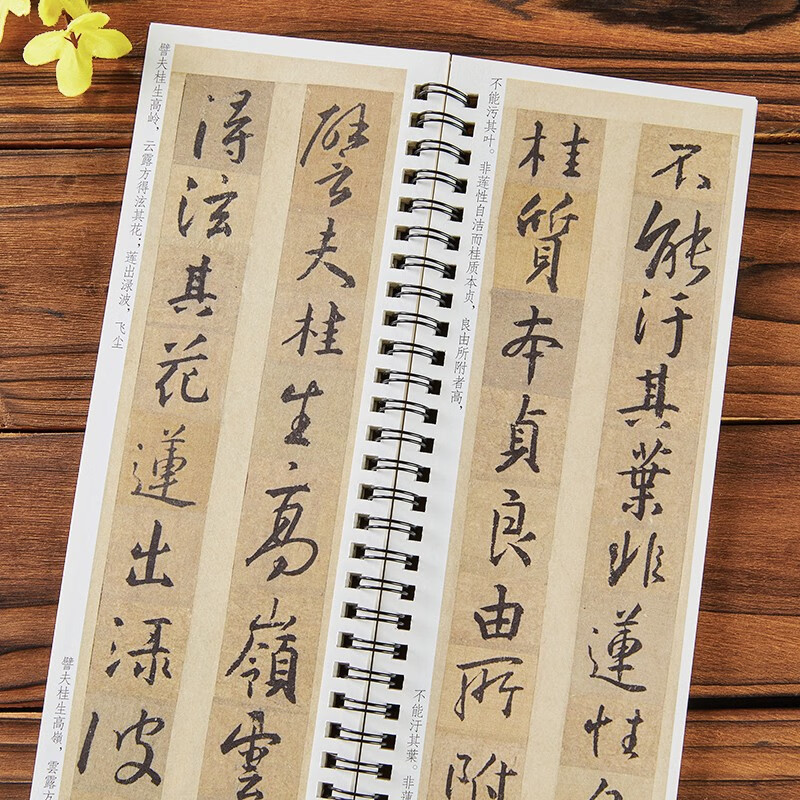 譬夫桂生高嶺雲
得泫其花蓮出淥波
譬夫桂生高岭，云露方得泫其花；莲出渌波，飞尘
譬夫桂生高嶺，雲露方
不能汙其葉非蓮性
桂質本貞良由所附
不能污其叶。非莲性自洁而桂质本贞，良由所附者高，
不能汙其葉。非蓮